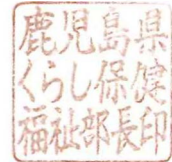 鹿児島県
くらし保健
福祉部長印